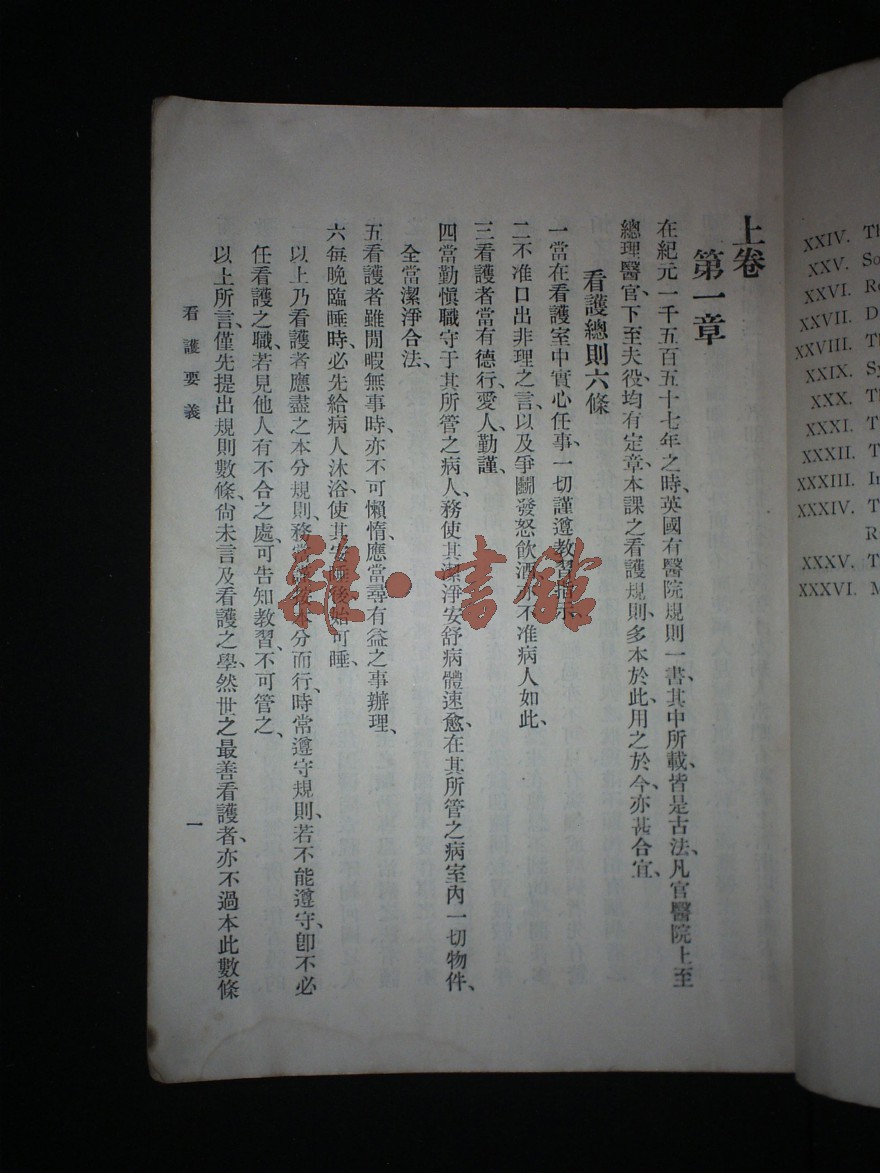 上卷
第一章
在紀元一千五百五十七年之時、英國有醫院規則一書、其中所載、皆是古法、凡官醫院上至
總理醫官、下至夫役、均有定章、本課之看護規則、多本於此、用之於今、亦甚合宜、
看護總則六條
一當在看護室中實心任事、一切謹遵教習指示、
二不准口出非理之言、以及爭鬭發怒飲酒、亦不准病人如此、
三看護者當有德行、愛人、勤謹、
四當勤愼職守于其所管之病人、務使其潔淨安舒病體速愈、在其所管之病室內一切物件、
全當潔淨合法、
五看護者雖閒暇無事時、亦不可懶惰、應當尋有益之事辦理、
六每晚臨睡時、必先給病人沐浴、使其安睡後始可睡、
以上乃看護者應盡之本分規則、務當按本分而行、時常遵守規則、若不能遵守、卽不必
任看護之職、若見他人有不合之處、可告知教習、不可管之、
以上所言、僅先提出規則數條、尙未言及看護之學、然世之最善看護者、亦不過本此數條
看護要義
一
雜·書館
XXIV. Th
XXV. So
XXVI. Re
XXVII. D
XXVIII. Th
XXIX. Sy
XXX. Th
XXXI. T
XXXII. T
XXXIII. In
XXXIV. T
R
XXXV. T
XXXVI. M